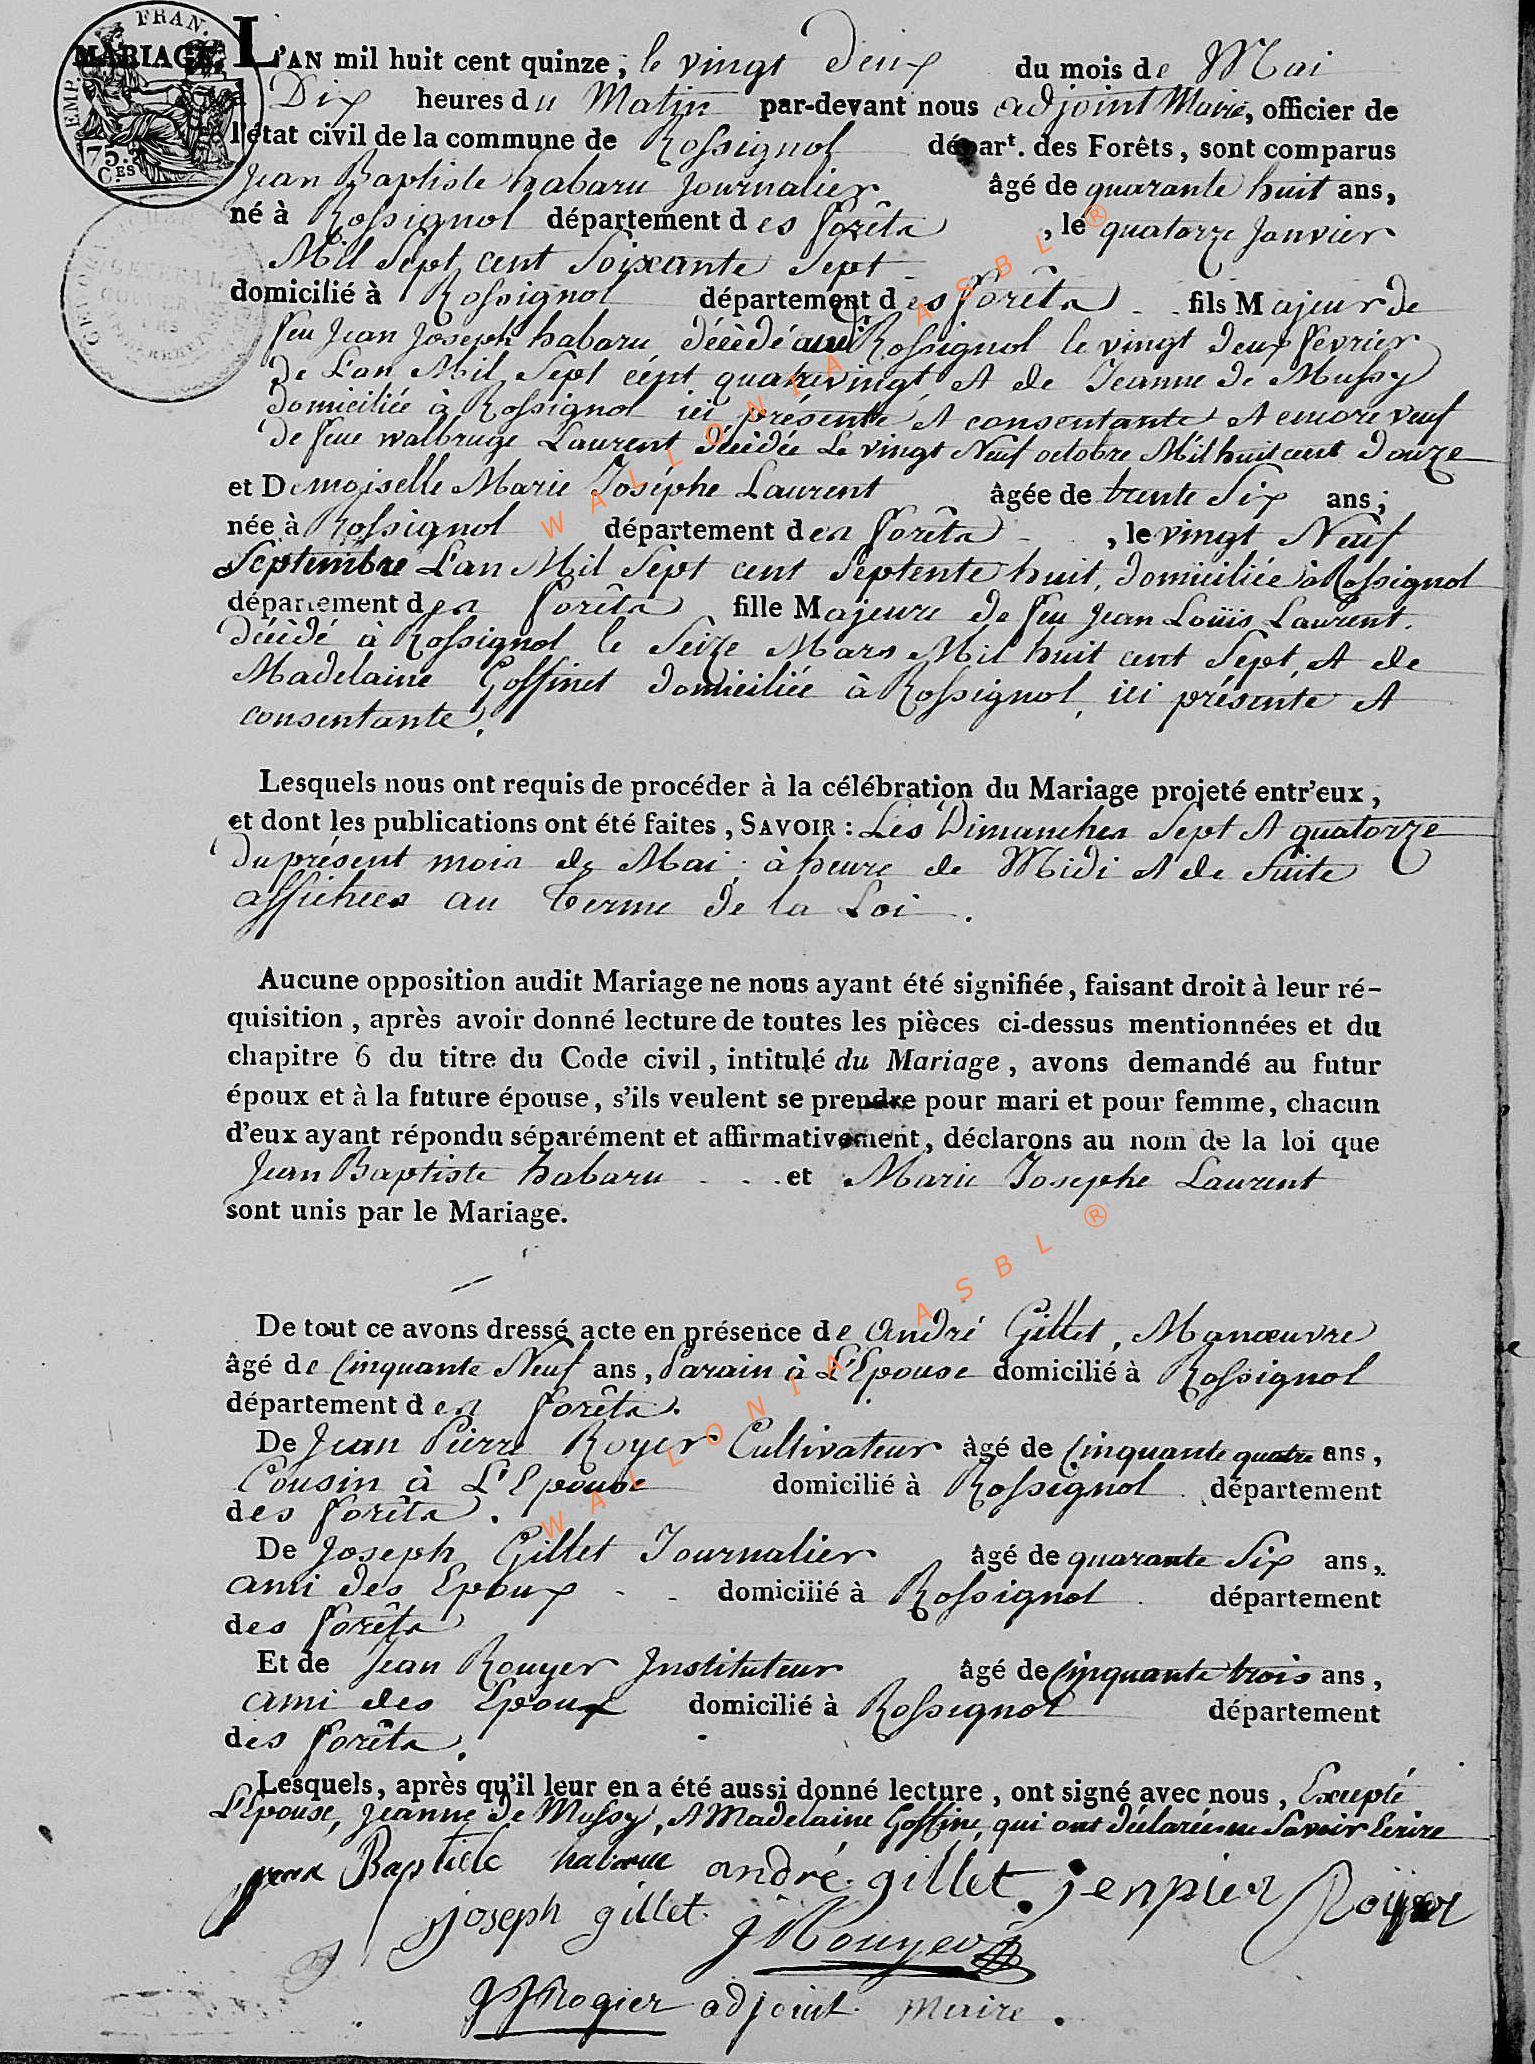 EMP. FRAN.
75.
C.ES
MARIAGE. L'AN mil huit cent quinze, le vingt Deux du mois de Mai
à Dix heures du Matin par-devant nous adjoint Maire, officier de
l'état civil de la commune de Rossignol départ. des Forêts, sont comparus
Jean Baptiste habaru Journalier âgé de quarante huit ans,
né à Rossignol département des forêts, le quatorze Janvier
Mil Sept cent Soixante Sept
domicilié à Rossignol département des forêts fils Majeur de
feu Jean Joseph habaru, décédé audit Rossignol le vingt deux fevrier
de L'an Mil Sept cent quatrevingt, et de Jeanne de Mussy
domiciliée à Rossignol ici présente et consentante et encore veuf
de feue walbruge Laurent décédée Le vingt Neuf octobre Mil huit cent douze
et Demoiselle Marie Josephe Laurent âgée de trente Six ans;
née à Rossignol département des forêts, le vingt Neuf
Septembre L'an Mil Sept cent Septente huit, domiciliée à Rossignol
département des forêts fille Majeure de feu Jean Loüis Laurent.
décédé à Rossignol le Seize Mars Mil huit cent Sept, et de
Madelaine Goffinet domiciliée à Rossignol, ici présente et
consentante.
Lesquels nous ont requis de procéder à la célébration du Mariage projeté entr'eux,
et dont les publications ont été faites, SAVOIR : Les Dimanches Sept et quatorze
du présent mois de Mai, à heure de Midi et de Suite
affichees au terme de la Loi.
Aucune opposition audit Mariage ne nous ayant été signifiée, faisant droit à leur ré-
quisition, après avoir donné lecture de toutes les pièces ci-dessus mentionnées et du
chapitre 6 du titre du Code civil, intitulé du Mariage, avons demandé au futur
époux et à la future épouse, s'ils veulent se prendre pour mari et pour femme, chacun
d'eux ayant répondu séparément et affirmativement, déclarons au nom de la loi que
Jean Baptiste habaru et Marie Josephe Laurent
sont unis par le Mariage.
De tout ce avons dressé acte en présence de André Gillet, Manœuvre
âgé de Cinquante Neuf ans, Parain à L'Epouse domicilié à Rossignol
département des forêts.
De Jean Pierre Royer Cultivateur âgé de Cinquante quatre ans,
Cousin à L'Epouse domicilié à Rossignol département
des forêts.
De Joseph Gillet Journalier âgé de quarante Six ans,
ami des Epoux domicilié à Rossignol département
des forêts
Et de Jean Rouyer Instituteur âgé de Cinquante trois ans,
ami des Epoux domicilié à Rossignol département
des forêts.
Lesquels, après qu'il leur en a été aussi donné lecture, ont signé avec nous, Excepté
L'Epouse, Jeanne de Mussy, et Madelaine Goffine, qui ont déclarés ne Savoir Ecrire
jean Baptiste habaru andré gillet. jenpier Roÿer
joseph gillet.
J Rouyer
JJ Rogier adjoint maire.
WALLONIA ASBL ®
WALLONIA ASBL ®